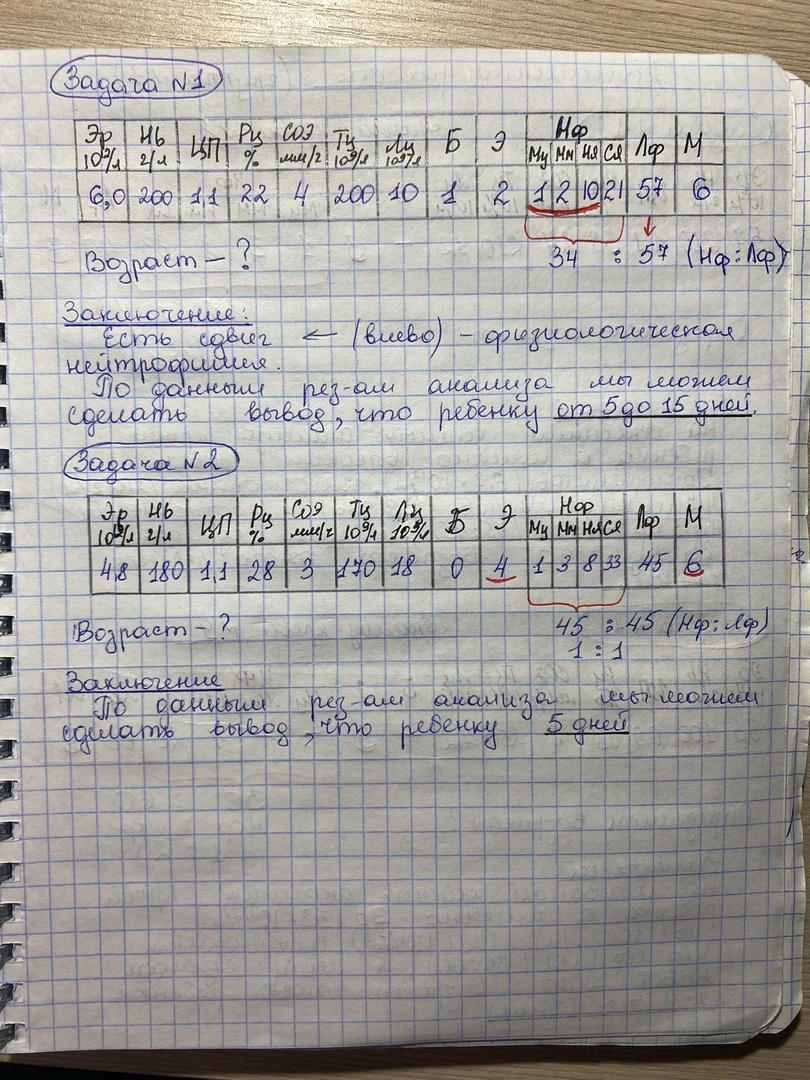 Задача №1
Эр Нь ЦП Рц СОЭ Тц Лц Б Э Нф Лф М
10¹²/л г/л % мм/г 10⁹/л 10⁹/л Мц Мм Ня Ся
6,0 200 1,1 22 4 200 10 1 2 1 2 10 21 57 6
Возраст – ? 34 : 57 (Нф:Лф)
Заключение:
Есть сдвиг ← (влево) – физиологическая
нейтрофилия.
По данным рез-ам анализа мы можем
сделать вывод, что ребенку от 5 до 15 дней.
Задача №2
Эр Нь ЦП Рц СОЭ Тц Лц Б Э Нф Лф М
10¹²/л г/л % мм/г 10⁹/л 10⁹/л Мц Мм Ня Ся
4,8 180 1,1 28 3 170 18 0 4 1 3 8 33 45 6
Возраст – ? 45 : 45 (Нф:Лф)
1 : 1
Заключение
По данным рез-ам анализа мы можем
сделать вывод, что ребенку 5 дней